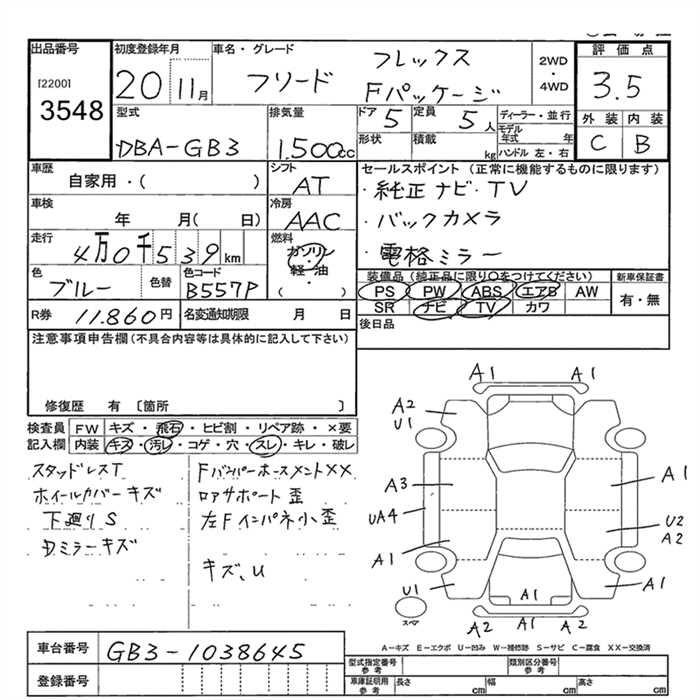 出品番号
[2200]
3548
初度登録年月
20 11月
車名・グレード
フリード
フレックス
Fパッケージ
2WD
・
4WD
評価点
3.5
外装 内装
C B
型式
DBA-GB3
排気量
1.500cc
ドア 5
定員 5人
形状
積載 kg
ディーラー・並行
モデル年式 年
ハンドル 左・右
車歴
自家用・( )
シフト
AT
車検
年 月( 日)
冷房
AAC
走行
4万0千539km
燃料
ガソリン
軽・油
( )
色
ブルー
色替
色コード
B557P
R券 11.860円
名変通知期限 月 日
セールスポイント (正常に機能するものに限ります)
・純正ナビ・TV
・バックカメラ
・電格ミラー
装備品 (純正品に限り○をつけてください)
PS PW ABS エアB AW
SR ナビ TV カワ
新車保証書
有・無
後日品
注意事項申告欄 (不具合内容等は具体的に記入して下さい)
修復歴 有 〔箇所 〕
検査員
記入欄
FW キズ・飛石・ヒビ割・リペア跡・×要
内装 キズ・汚レ・コゲ・穴・スレ・キレ・破レ
スタッドレスT
ホイールカバーキズ
下廻りS
Dミラーキズ
FバンパーホースメントXX
ロアサポート歪
左Fインパネ小歪
キズ、U
A1 A1
A2
U1
A3
UA4
A1
U1
A1
U2
A2
A1
A1
A2 A2
スペア
A-キズ E-エクボ U-凹み W-補修跡 S-サビ C-腐食 XX-交換済
車台番号 GB3-1038645
登録番号
型式指定番号
参考
類別区分番号
参考
車庫証明用
参考
長さ cm
幅 cm
高さ cm